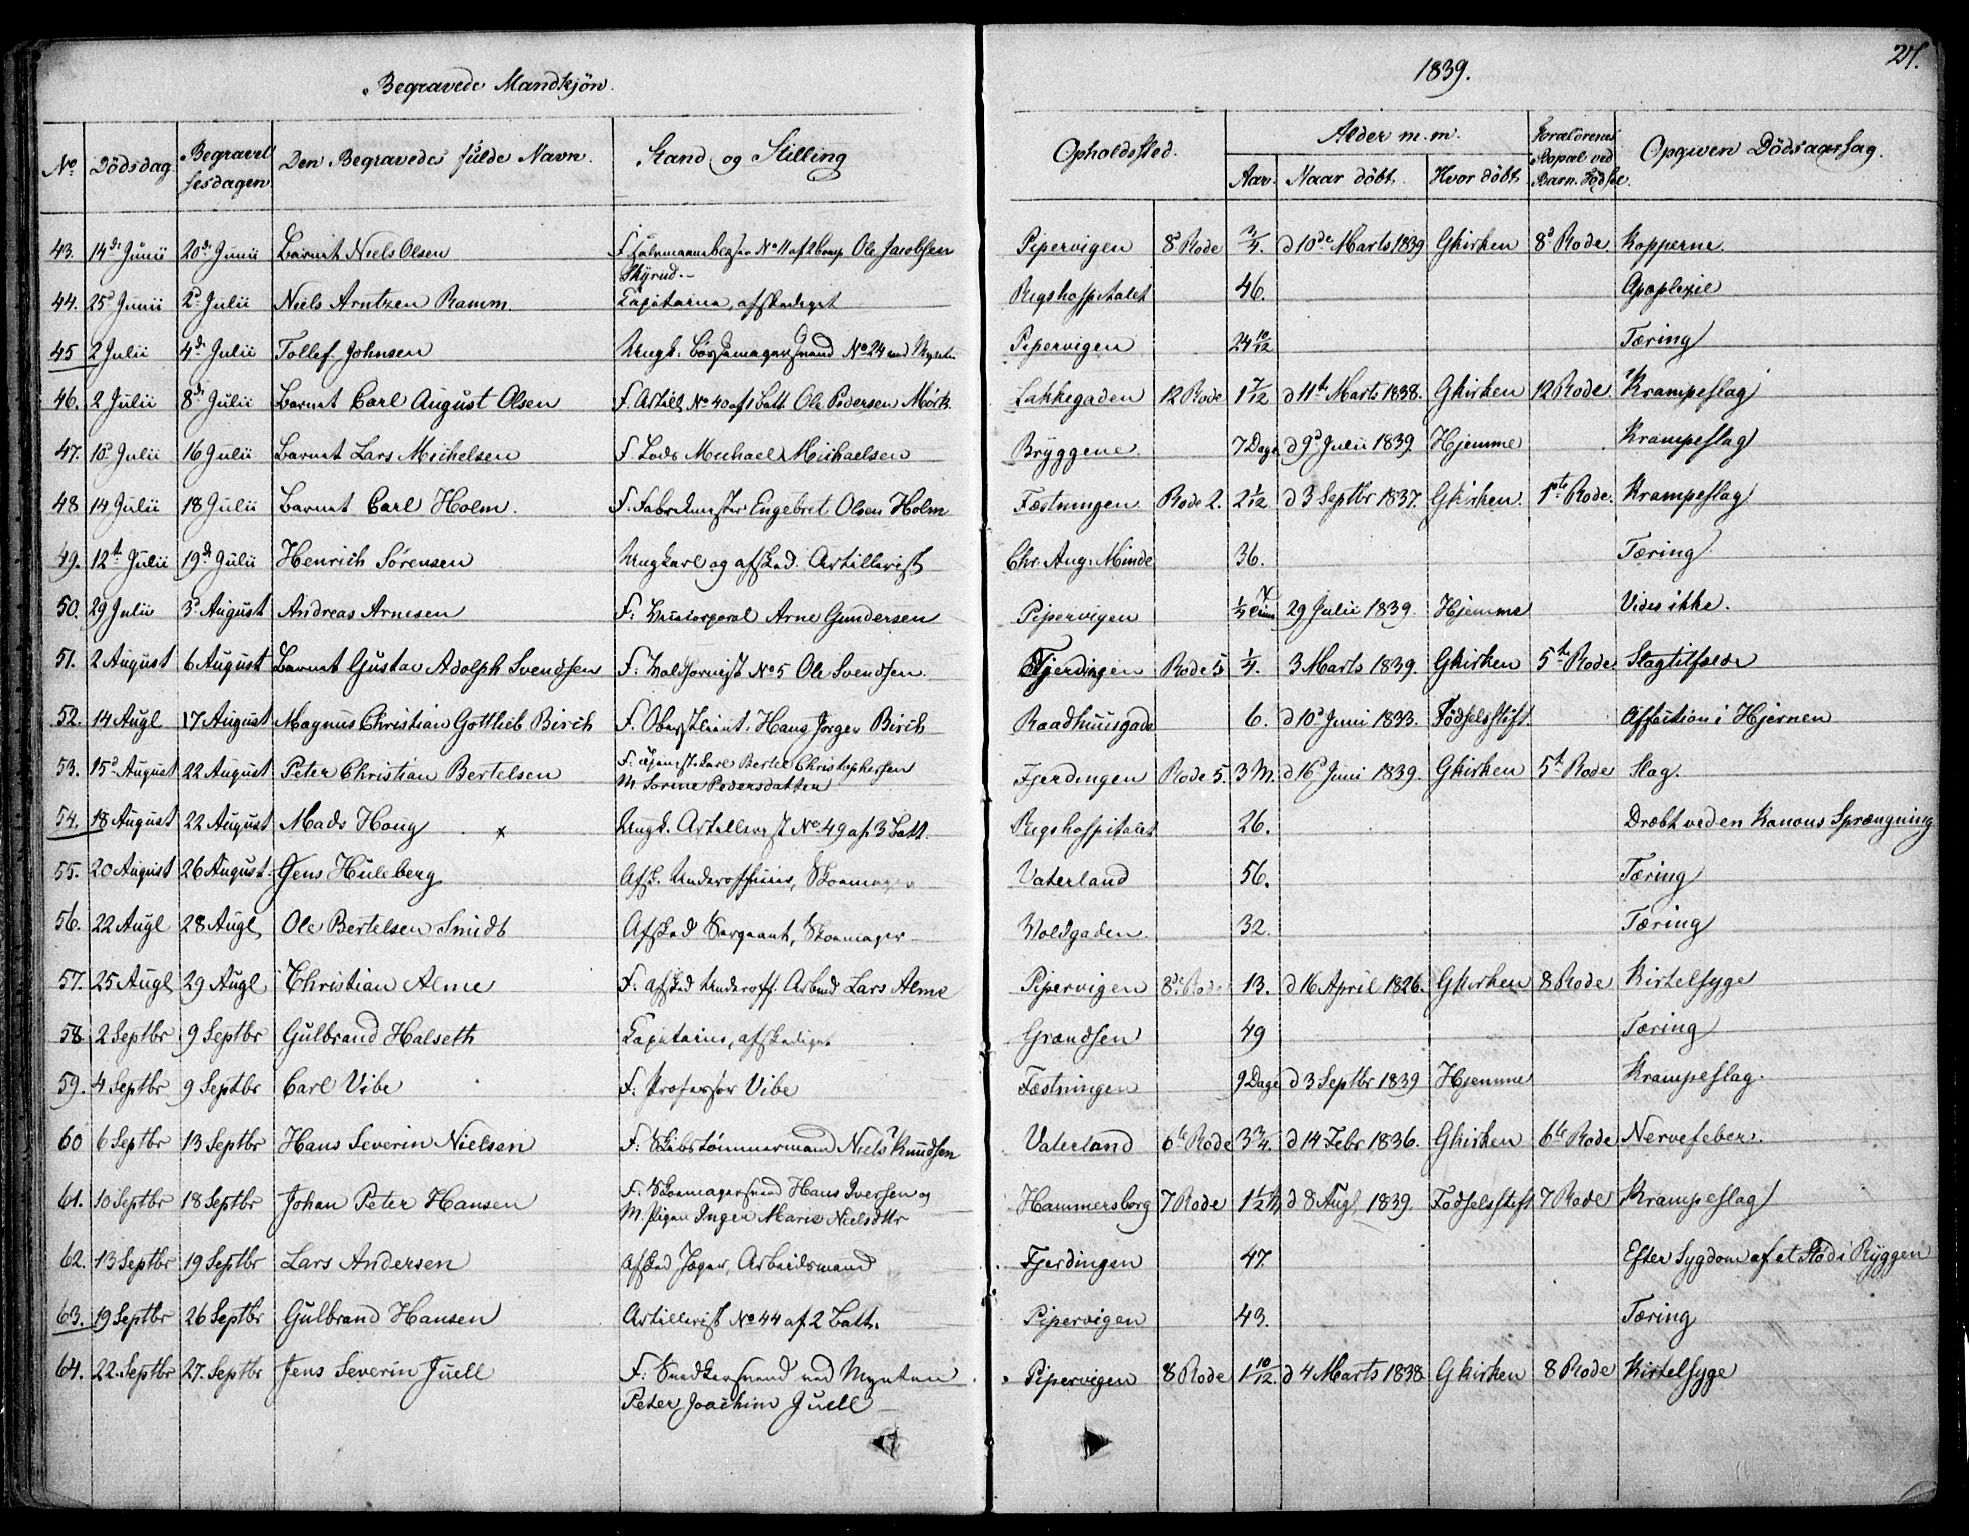 Begravede Mandkjön.
1839.
27.
No Dödsdag Begravelsesdagen Den Begravedes fulde Navn. Stand og Stilling Opholdssted. Alder m.m. Aar. Naar döbt. Hvor döbt Forældrenes Bopæl ved Barn. Födsel. Opgiven Dödsaarsag.
43. 14de Junii 20de Junii Barnet Niels Olsen F. No 11 af 2 Comp Ole Jacobsen Pipervigen 8de Rode 3/4. d 10de Marts 1839 GKirken 8de Rode. Kopperne.
Skyrud.
44. 25d Junii 2d Julii Niels Arntzen Ramm. Capitaine, afskediget Rigshospitalet 46. Apoplexie
45 2 Julii 4de Julii Tollef Johnsen Ungk. Börsemagersvend No 24 ved Mynten Pipervigen 24 10/12 Tæring
46. 2 Julii 8de Julii Barnet Carl August Olsen F. Artill. No 40 af 1 Batt. Ole Pedersen Mörk. Lakkegaden 12 Rode 1 7/12 d 11te Marts 1838. GKirken 12 Rode. Krampeslag
47. 10d Julii 16 Julii Barnet Lars Michelsen F. Lods Michael Michaelsen Bryggene. 7 Dage d 9d Julii 1839. Hjemme Krampeslag
48 14 Julii 18 Julii Barnet Carl Holm. F. Engebret Olsen Holm Fæstningen Rode 2. 2 1/12 d 3 Septbr 1837. GKirken. 1ste Rode. Krampeslag
49. 12te Julii 19de Julii Henrich Sörensen Ungkarl og afsked. Artillerist Chr. Aug. Minde 36. Tæring
50. 29 Julii 3d August Andreas Arnesen F: Arne Gundersen Pipervigen 29 Julii 1839. Hjemme Vides ikke.
51. 2 August 6 August Barnet Gustav Adolph Svendsen F: Valdhornist No 5 Ole Svendsen. Fjerdingen Rode 5 1/4. 3 Marts 1839. GKirken 5te Rode. Slagtilfælde
52. 14 Augl 17 August Magnus Christian Gottlieb Birch F. Oberstlieut. Hans Jörgen Birch Raadhuusgade 6. d 10d Juni 1833. Födselsstift. Affection i Hjernen
53. 15d August 22 August Peter Christian Bertelsen F: Tjenestekarl Berte Christophersen Fjerdingen Rode 5. 3 M. d 16d Juni 1839. GKirken 5te Rode Slag.
M Sorine Pedersdatter
54. 18 August 22 August Mads Houg x Ungk. Artillerist No 49 af 3 Batt. Rigshospitalet 26. Dræbt ved en Kanons Sprængning
55. 20 August 26 August Jens Huleberg Afsk. Underofficier, Skomager Vaterland 56. Tæring
56. 22 Augl 28 Augl, Ole Bertelsen Smidt Afsked Sergeant, Skomager Voldgaden. 32. Tæring
57. 25 Augl 29 Augl Christian Alme F. afsked Underoff. Arbmd Lars Alme Pipervigen 8de Rode 13. d 16 April 1826. GKirken 8 Rode Kirtelsyge
58 2 Septbr 9 Septbr Gulbrand Halseth Capitaine, afskediget Grændsen 49 Tæring
59. 4 Septbr 9 Septbr Carl Vibe F: Professor Vibe Fæstningen 9 Dage d 3 Septbr 1839 Hjemme Krampeslag.
60 6 Septbr 13 Septbr Hans Severin Nielsen F: Skibstömmermand Niels Knudsen Vaterland 6te Rode 3 3/4. d 14 Febr 1836. GKirken 6te Rode Nervefeber.
61. 10 Septbr 18 Septbr Johan Peter Hansen F. Skomagersvend Hans Iversen og Hammersborg 7 Rode 1 1/2 M, d 8 Augl 1839. Födselsstift 7 Rode Krampeslag
M. Pigen Inger Marie Nielsdttr
62. 13 Septbr 19 Septbr Lars Andersen Afsked Jæger, Arbeidsmand Fjerdingen 47. Efter Sygdom af et Stöd i Ryggen
63. 19 Septbr 26 Septbr Gulbrand Hansen Artillerist No 44 af 2 Batt. Pipervigen 43. Tæring
64. 22. Septbr 27. Septbr Jens Severin Juell F: Snedkersvend ved Mynten Pipervigen 8 Rode 1 10/12. d 4 Marts 1838 GKirken 8 Rode Kirtelsyge
Peter Joachim Juell